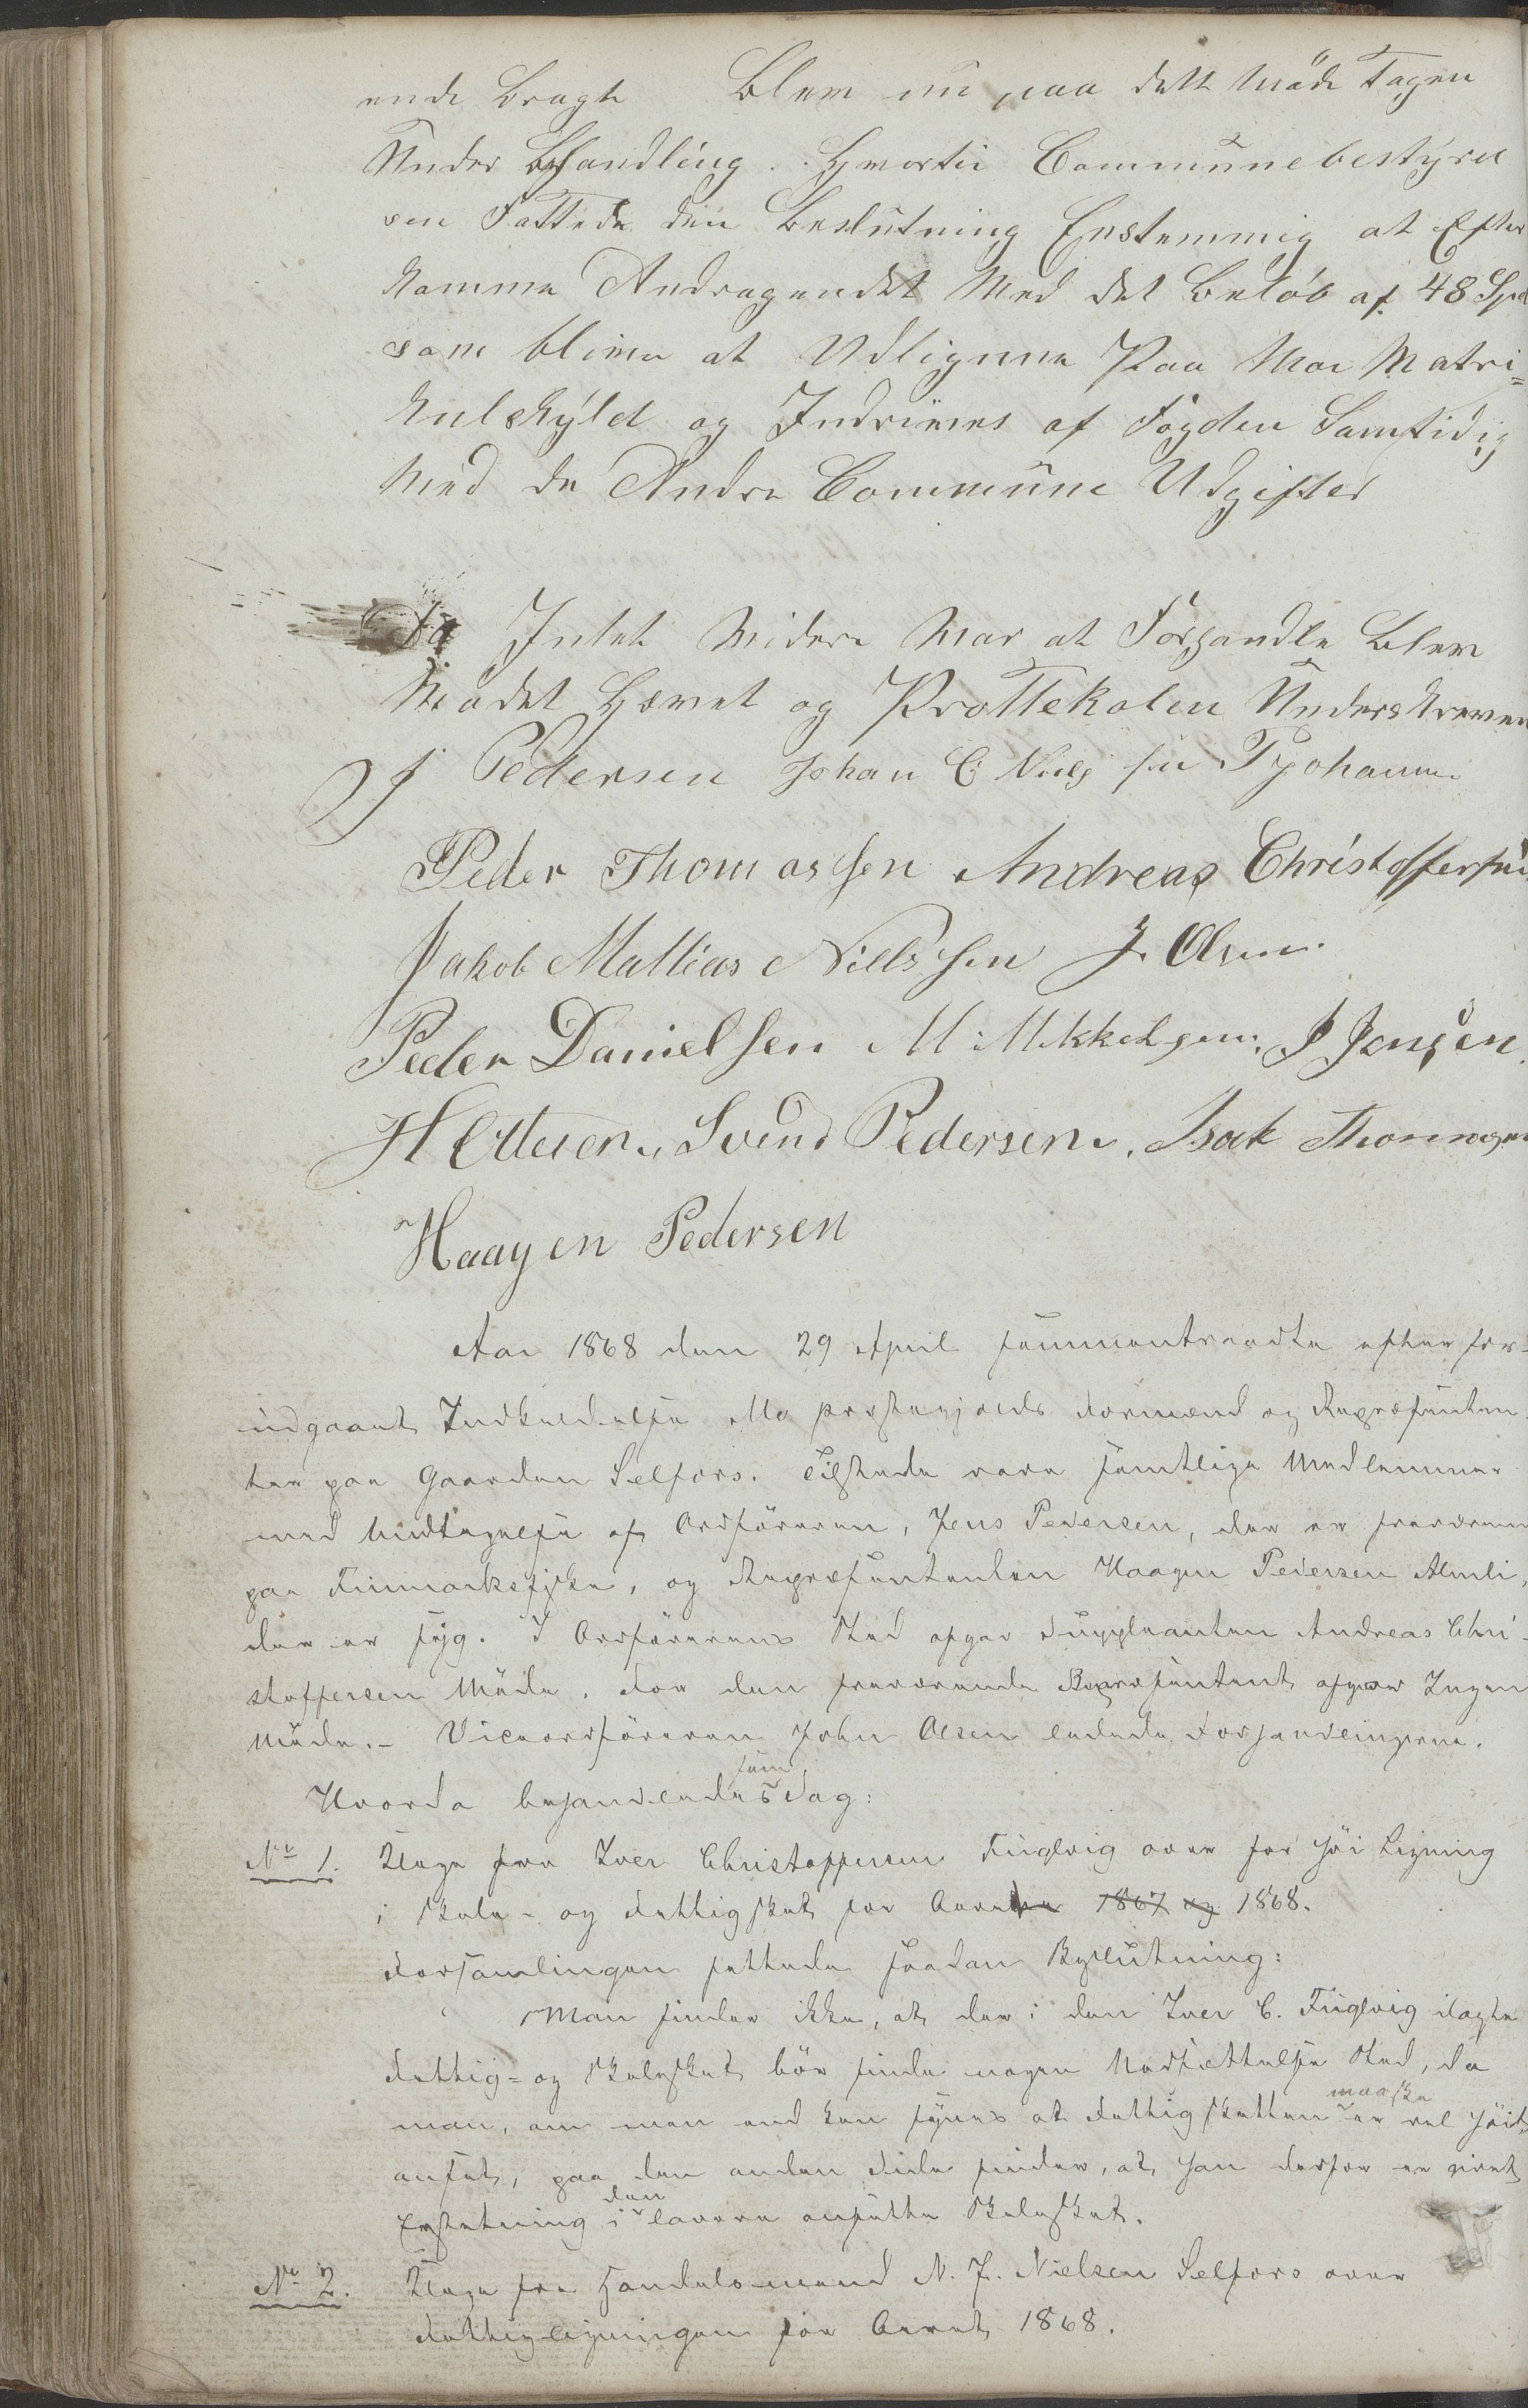 ende bragt Blev nu paa dett Möde Tagen
Under Behandling. Hvortil Communebestyrel
sen Fattede den Beslutning Enstemmig at Efter
komme Andragendet Med det Beløb af 48 Spd
som bliver at Udlignne Paa Moe Matri=
kulskyld og Indrives af Fogden Samtidig
Med de Andre Commune Udgifter
Da Intet Videre Var at Forhandle blev
Mødet Hævet og Prottekolen Underskreven
J Pedersen Johan C Niels sen P Johann
Peder Thomassen Andreas Christoffersen
Jakob Mattias Nillssen J. Olsen.
Peder Danielsen M: Mikkelsen. J Jensen.
H Ottesen. Svend Pedersen. Isak Thomasen
Haagen Pedersen
Aar 1868 den 29 April sammentraadte efter for-
udgaaet Indkaldelse Mo præstegjælds Formænd og Repræsentan-
ter paa Gaarden Selfors. Tilstede vare samtlige Medlemmer
med Undtagelse af Ordføreren, Jens Pedersen, der er fraværende
paa Finmarksfiske, og Repræsentanten Haagen Pedersen Almli,
der er syg. I Ordførerens Sted afgav Suppleanten Andreas Chri-
stoffersen Møde. For den fraværende Repræsentant afgav Ingen
Møde. – Viceordføreren John Olsen ledede Forhandlingerne.
Hvorda behandledes som Sag:
No 1. Klage fra Iver Christoffersen Fuglvig over for höi Ligning
i Skole- og Fattigskat for Aaret 1867 og 1868.
Forsamlingen fattede saadan Beslutning:
Man finder ikke, at der i den Iver C. Fuglvig ilagte
Fattig= og Skoleskat bör finde nogen Nedsættelse Sted, da
man, om man end kan synes at Fattigskatten maaske er vel höit
ansat, paa den anden Side finder, at han derfor er givet
Erstatning i den lavere ansatte Skoleskat.
No 2. Klage fra Handelsmand N. J. Nielsen Selfors over
Fattigligningen for Aaret 1868.